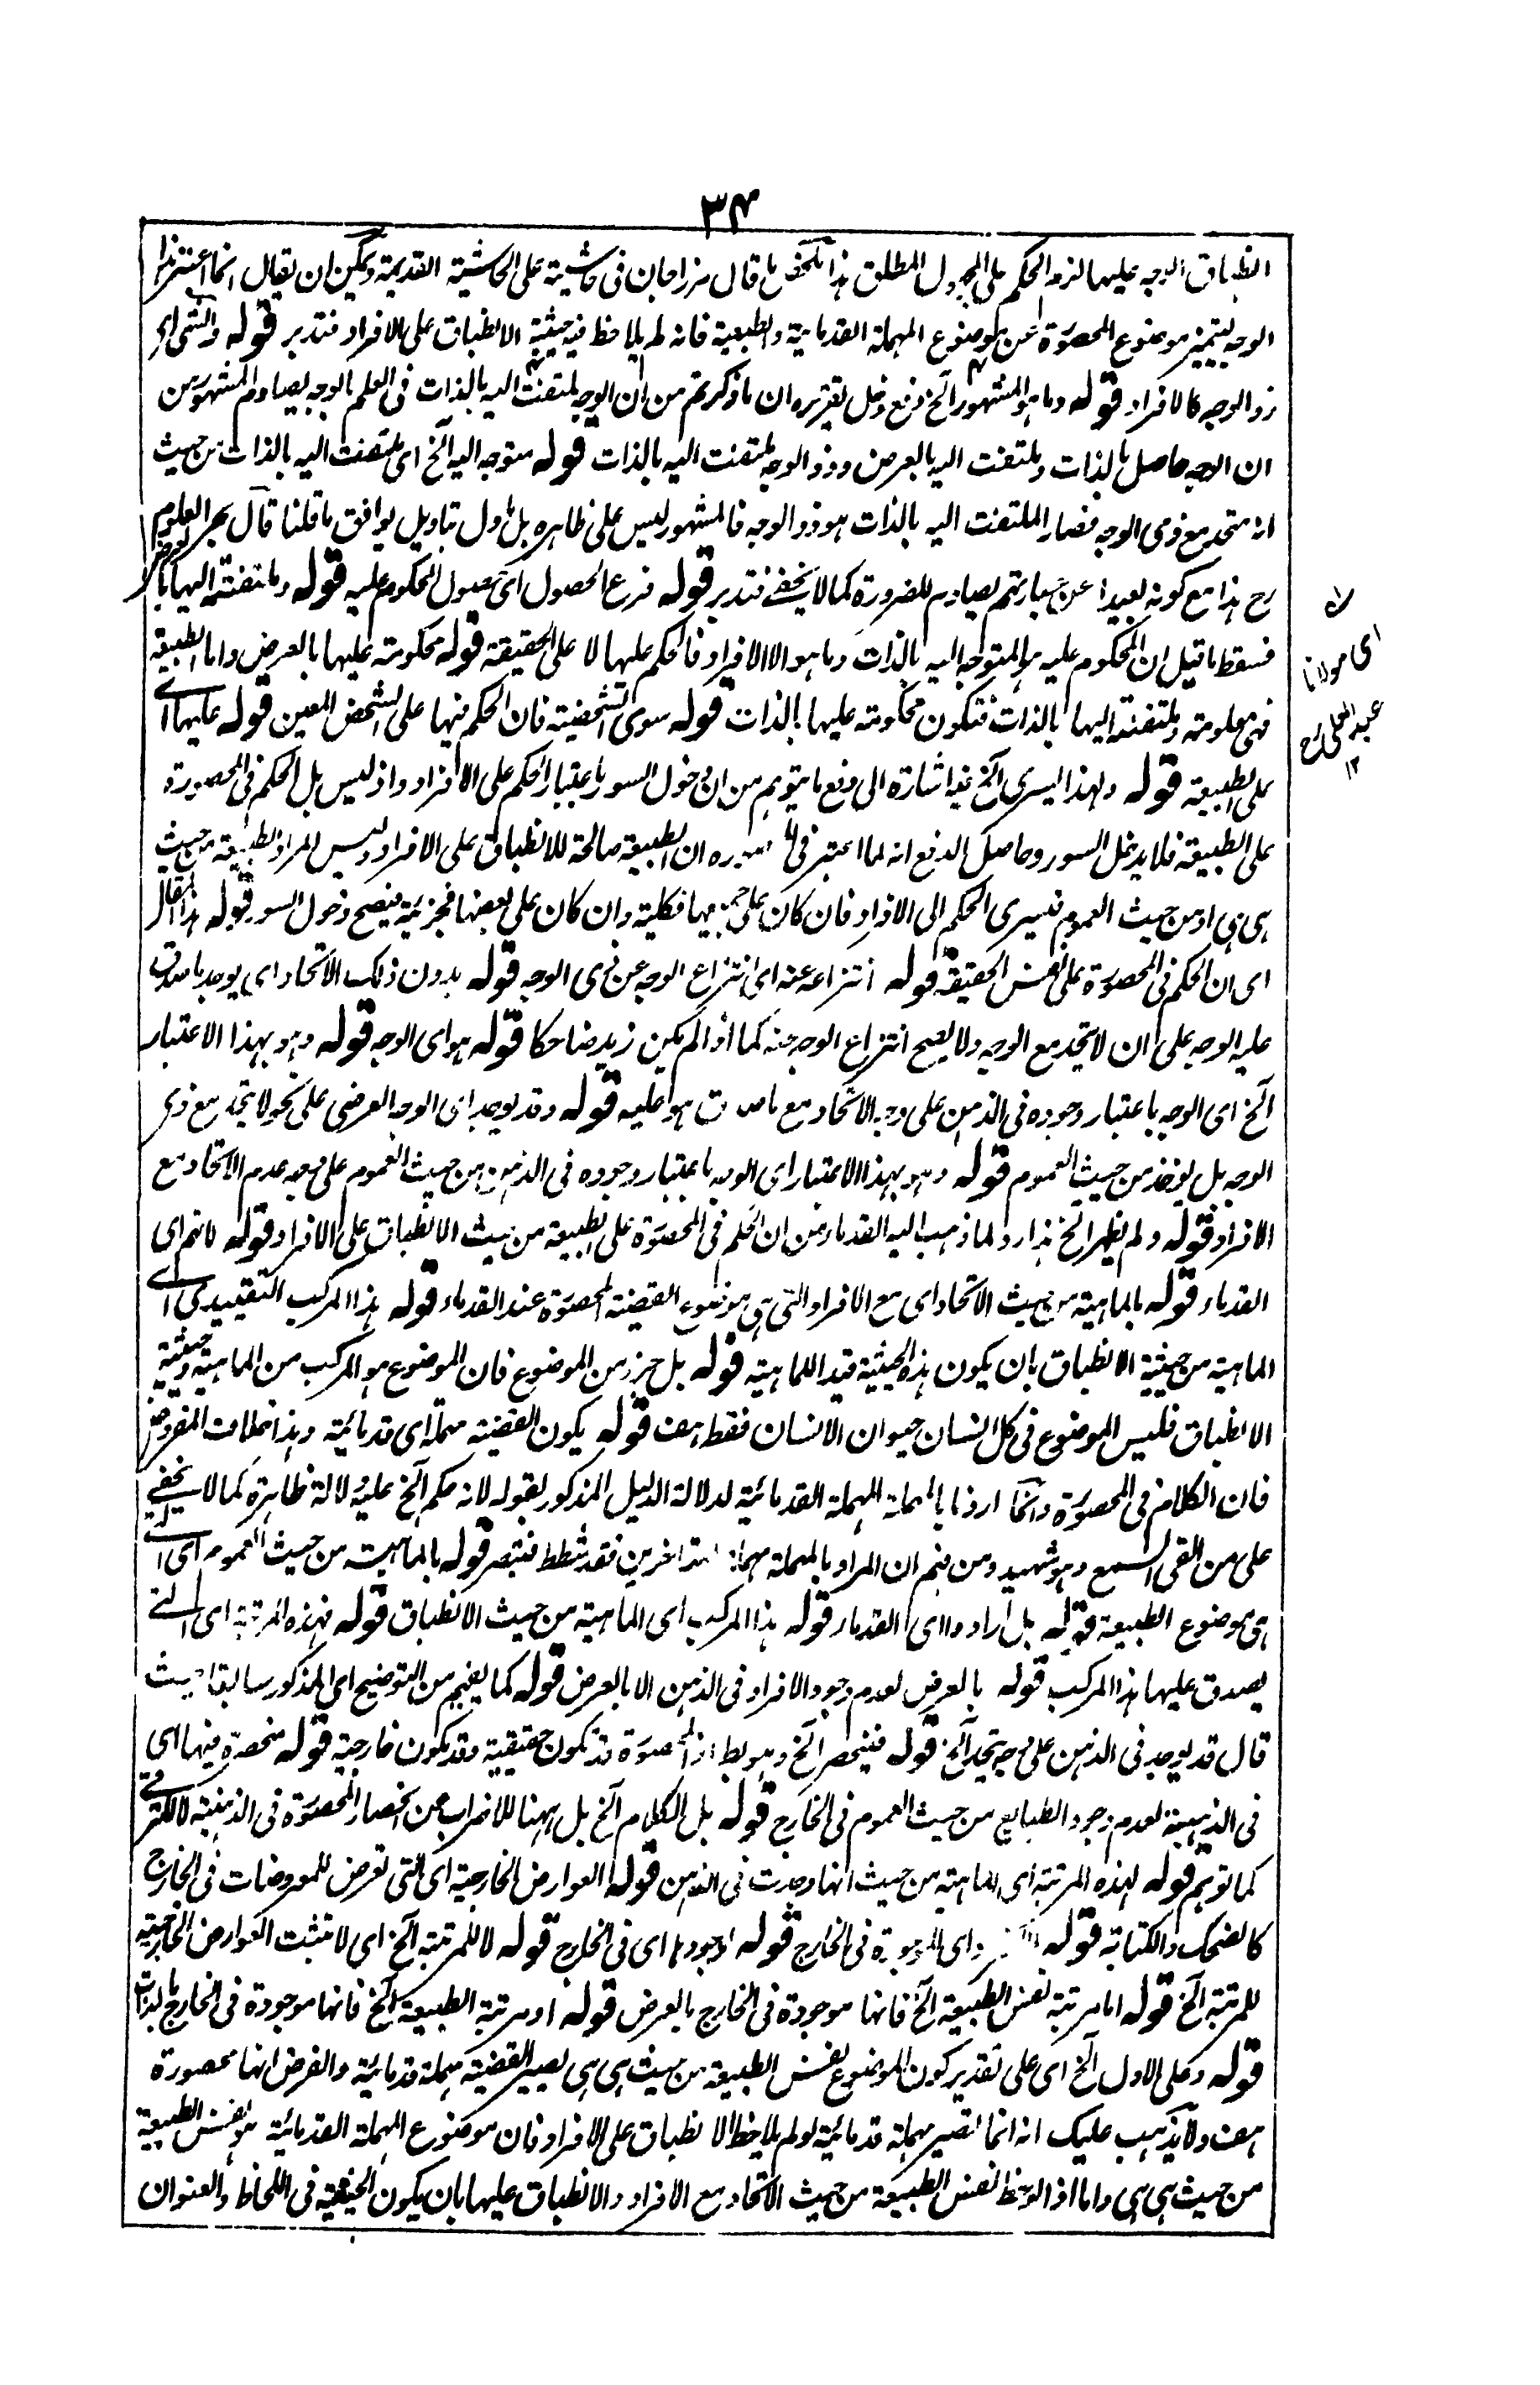 ٣٤
انطباق الوجه عليها لزم الحكم على المجهول المطلق هذا ملخص ما قال مرزا جان فى حاشية على الحاشية القديمة ويمكن ان يقال انما اعتبر هذا
الوجه ليتميز موضوع المحصورة عن موضوع المهملة القدمائية والطبعية فانه لم يلاحظ فيه حيثية الانطباق على الافراد فتدبر قوله والشى اى
ذو الوجه كالافراد قوله وما هو المشهور الخ دفع دخل تقريره ان ما ذكرتم من ان الوجه ملتفت اليه بالذات فى العلم بالوجه يصادم المشهور من
ان الوجه حاصل بالذات وملتفت اليه بالعرض وذو الوجه ملتفت اليه بالذات قوله متوجه اليه الخ اى ملتفت اليه بالذات من حيث
انه متحد مع ذى الوجه فصار الملتفت اليه بالذات هو ذو الوجه فالمشهور ليس على ظاهره بل ماول بتاويل يوافق ما قلنا قال بحر العلوم
رح هذا مع كونه بعيدا عن عبارتهم يصادم للضرورة كما لا يخفى فتدبر قوله فرع الحصول اى حصول المحكوم عليه قوله وملتفتة اليها بالعرض
فسقط ما قيل ان المحكوم عليه هو المتوجه اليه بالذات وما هو الا الافراد فالحكم عليها لا على الحقيقة قوله محكومة عليها بالعرض واما الطبيعة
فهى معلومة وملتفتة اليها بالذات فتكون محكومة عليها بالذات قوله سوى الشخصية فان الحكم فيها على الشخص المعين قوله عليها اى
على الطبيعة قوله ولهذا يسرى الخ فيه اشارة الى دفع ما يتوهم من ان دخول السور باعتبار الحكم على الافراد واذ ليس بل الحكم فى المحصورة
على الطبيعة فلا يدخل السور وحاصل الدفع انه لما اعتبر فى ان الطبيعة صالحة للانطباق على الافراد وليس المراد الطبيعة من حيث
هى هى او من حيث العموم فيسرى الحكم الى الافراد فان كان على جميعها فكلية وان كان على بعضها فجزئية فيصح دخول السور قوله هذا المقال
اى ان الحكم فى المحصورة على نفس الحقيقة قوله انتزاعه عنه اى انتزاع الوجه عن ذى الوجه قوله بدون ذلك الاتحاد اى يوجد ما صدق
عليه الوجه على ان لا يتحد مع الوجه ولا يصح انتزاع الوجه عنه كما اذا لم يكن زيد ضاحكا قوله هو اى الوجه قوله وهو بهذا الاعتبار
الخ اى الوجه باعتبار وجوده فى الذهن على وجه الاتحاد مع ما صدق هو عليه قوله وقد يوجد اى الوجه العرضى على نحو لا يتحد مع ذى
الوجه بل يوخذ من حيث العموم قوله وهو بهذا الاعتبار اى الوجه باعتبار وجوده فى الذهن من حيث العموم على وجه عدم الاتحاد مع
الافراد قوله ولم يظهر الخ هذا رد لما ذهب اليه القدماء من ان الحكم فى المحصورة على الطبيعة من حيث الانطباق على الافراد قوله لانهم اى
القدماء قوله بالماهية من حيث الاتحاد اى مع الافراد التى هى موضوع القضية المحصورة عند القدماء قوله هذا المركب التقييدى اى
الماهية من حيثية الانطباق بان يكون هذه الحيثية قيدا للماهية قوله بل جزء من الموضوع فان الموضوع هو المركب من الماهية وحيثية
الانطباق فليس الموضوع فى كل انسان حيوان الانسان فقط هف قوله يكون القضية مهملة اى قدمائية وهذا خلاف المفروض
فان الكلام فى المحصورة وانما اردنا بالمهملة المهملة القدمائية لدلالة الدليل المذكور بقوله لانه حكم الخ عليه دلالة ظاهرة كما لا يخفى
على من القى السمع وهو شهيد ومن فهم ان المراد بالمهملة مهملة المتاخرين فقد شطط فتبصر قوله بالماهية من حيث العموم اى التى
هى موضوع الطبيعة قوله بل ارادوا اى القدماء قوله هذا المركب اى الماهية من حيث الانطباق قوله فهذه المرتبة اى التى
يصدق عليها هذا المركب قوله بالعرض لعدم وجود الافراد فى الذهن الا بالعرض قوله كما يفهم من التوضيح اى المذكور سابقا حيث
قال قد يوجد فى الذهن على وجه يتحد الخ قوله فينحصر الخ وهو بط اذ المحصورة قد تكون حقيقية وقد يكون خارجية قوله منحصرة فيها اى
فى الذهنية لعدم وجود الطبايع من حيث العموم فى الخارج قوله بل الكلام الخ بل ههنا للاضراب عن انحصار المحصورة فى الذهنية لا للترقى
كما توهم قوله لهذه المرتبة اى الماهية من حيث انها وجدت فى الذهن قوله العوارض الخارجية اى التى تعرض للمعروضات فى الخارج
كالضحك والكتابة قوله اى الموجودة فى الخارج قوله لوجودها اى فى الخارج قوله لا للمرتبة الخ اى لا تثبت العوارض الخارجية
للمرتبة الخ قوله اما مرتبة نفس الطبيعة الخ فانها موجودة فى الخارج بالعرض قوله او مرتبة الطبيعة الخ فانها موجودة فى الخارج بالذات
قوله وعلى الاول الخ اى على تقدير كون الموضوع نفس الطبيعة من حيث هى هى يصير القضية مهملة قدمائية والفرض انها محصورة
هف ولا يذهب عليك انه انما تصير مهملة قدمائية لو لم يلاحظ الانطباق على الافراد فان موضوع المهملة القدمائية هو نفس الطبيعة
من حيث هى هى واما اذا لوحظ نفس الطبيعة من حيث الاتحاد مع الافراد والانطباق عليها بان يكون الحيثية فى اللحاظ والعنوان
اى مولانا
عبد العلى رح
١٢